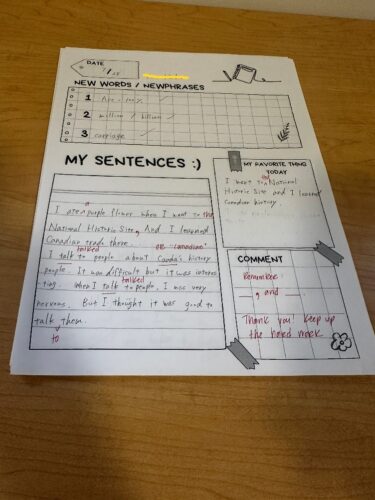 DATE
7/28
NEW WORDS / NEWPHRASES
1
2 million / billion /
3 carriage /
MY SENTENCES :)
a
I ate purple flower when I went to the
National Historic Site, And I learned
Canadian trade there. or canadian'
talked
I talk to people about Canda's history
people. It was difficult but it was interes
talked
ting. When I talk to people, I was very
nervous. But I thought it was good to
talk them.
to
MY FAVORITE THING
TODAY
I went to National
Historic Site and I learned
Canadian history
COMMENT
Remember:
, and
Thank you keep up
the hard work